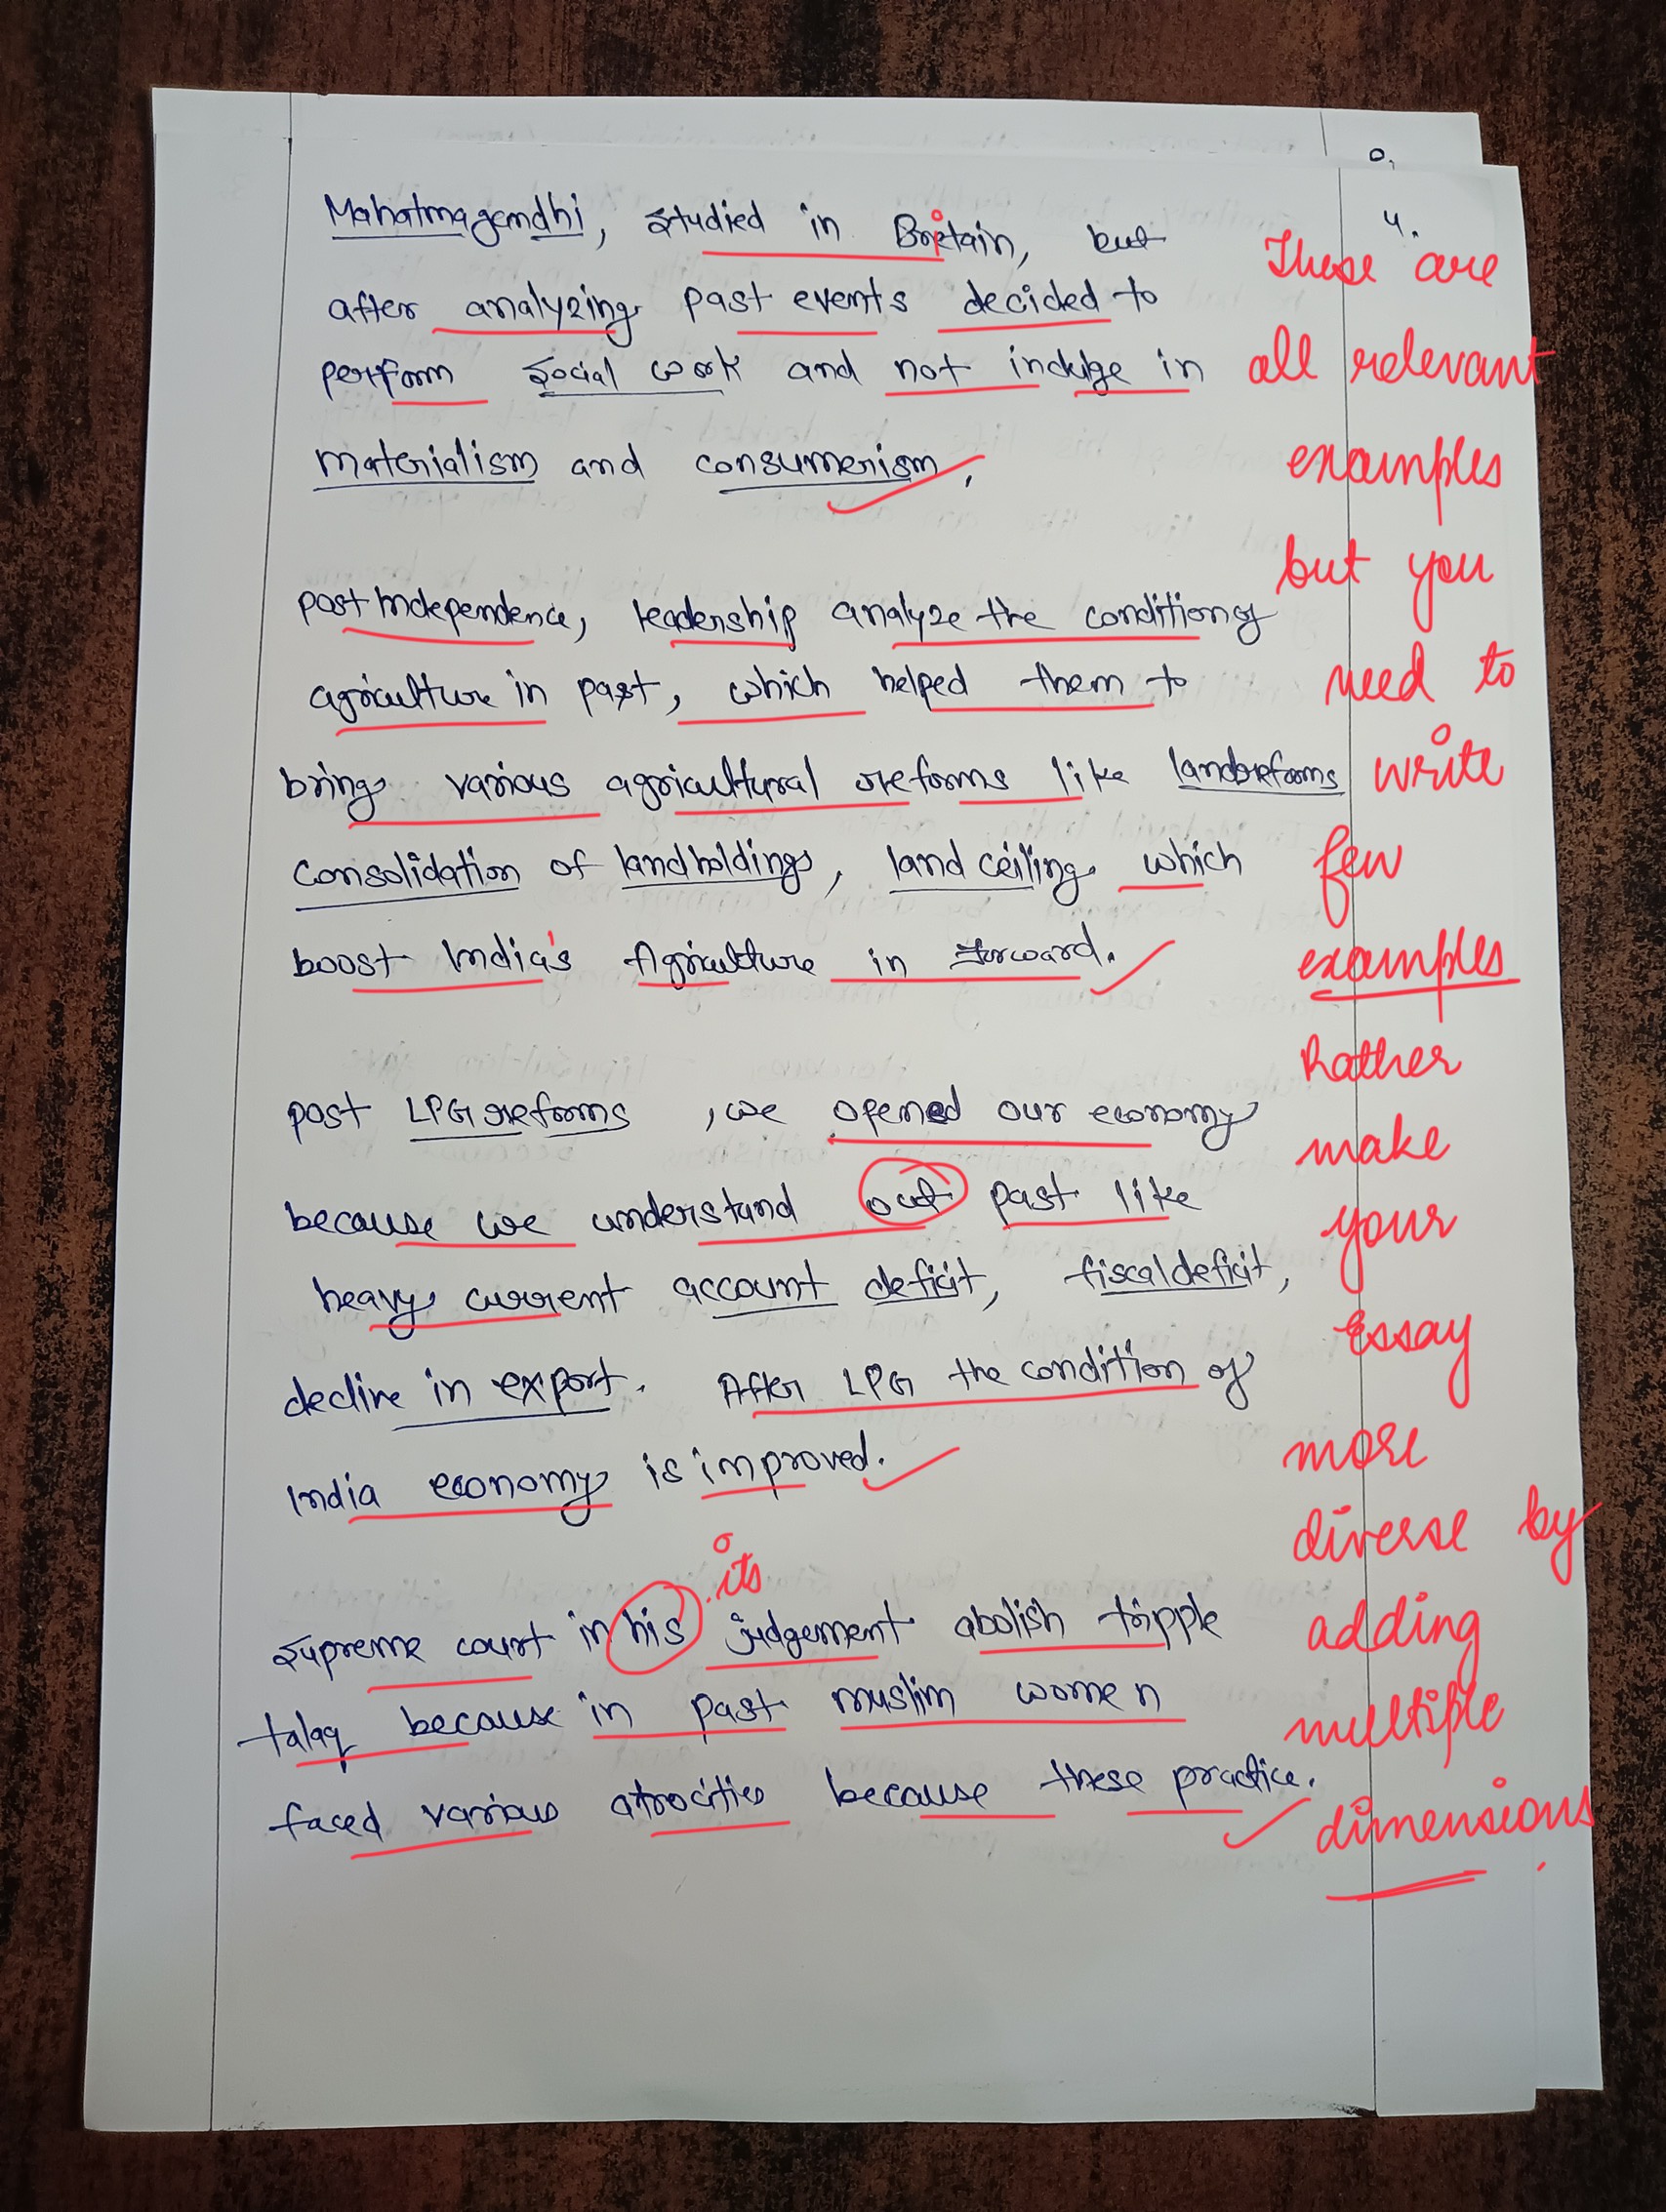 0,
4.
Mahatmagandhi, studied in Britain, but
after analyzing past events decided to
perform social work and not indulge in
materialism and consumerism,
post Independence, leadership analyze the condition of
agriculture in past, which helped them to
bring various agricultural reforms like landreforms
consolidation of landholdings, land ceiling which
boost India's Agriculture in forward.
post LPG reforms , we opened our economy
because we understand out past like
heavy current account deficit, fiscal deficit,
decline in export. After LPG the condition of
India economy is improved.
supreme court in his judgement abolish tripple
talaq because in past muslim women
faced various atrocities because these practice.
its
These are
all relevant
examples
but you
need to
write
few
examples
Rather
make
your
essay
more
diverse by
adding
multiple
dimensions.